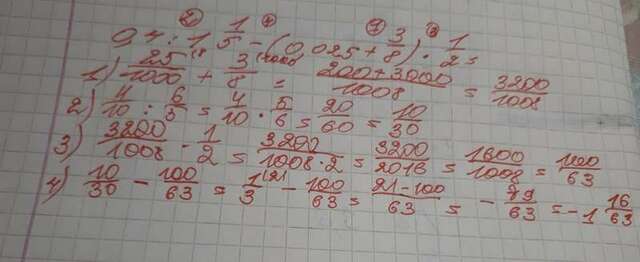 ② 4
0,4 : 1 1/5 - (0,025 + 3/8) · 1/2 =
1) 25/1000 + 3/8 = 200+3000/1008 = 3200/1008
2) 4/10 : 6/5 = 4/10 · 5/6 = 20/60 = 10/30
3) 3200/1008 · 1/2 = 3200/1008·2 = 3200/2016 = 1600/1008 = 100/63
4) 10/30 - 100/63 = 1/3 - 100/63 = 21-100/63 = - 79/63 = -1 16/63